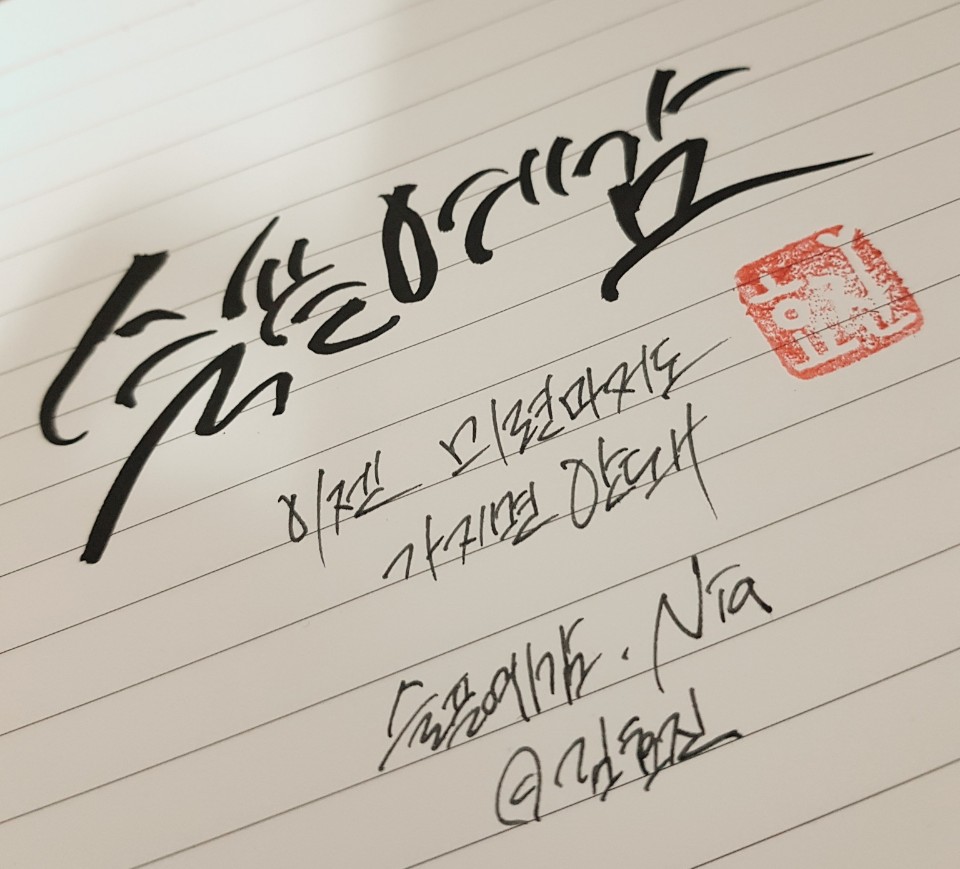 슬픈예감
현진
이젠 미련마저도
가지면 안돼
슬픈예감. Nia
@김현진